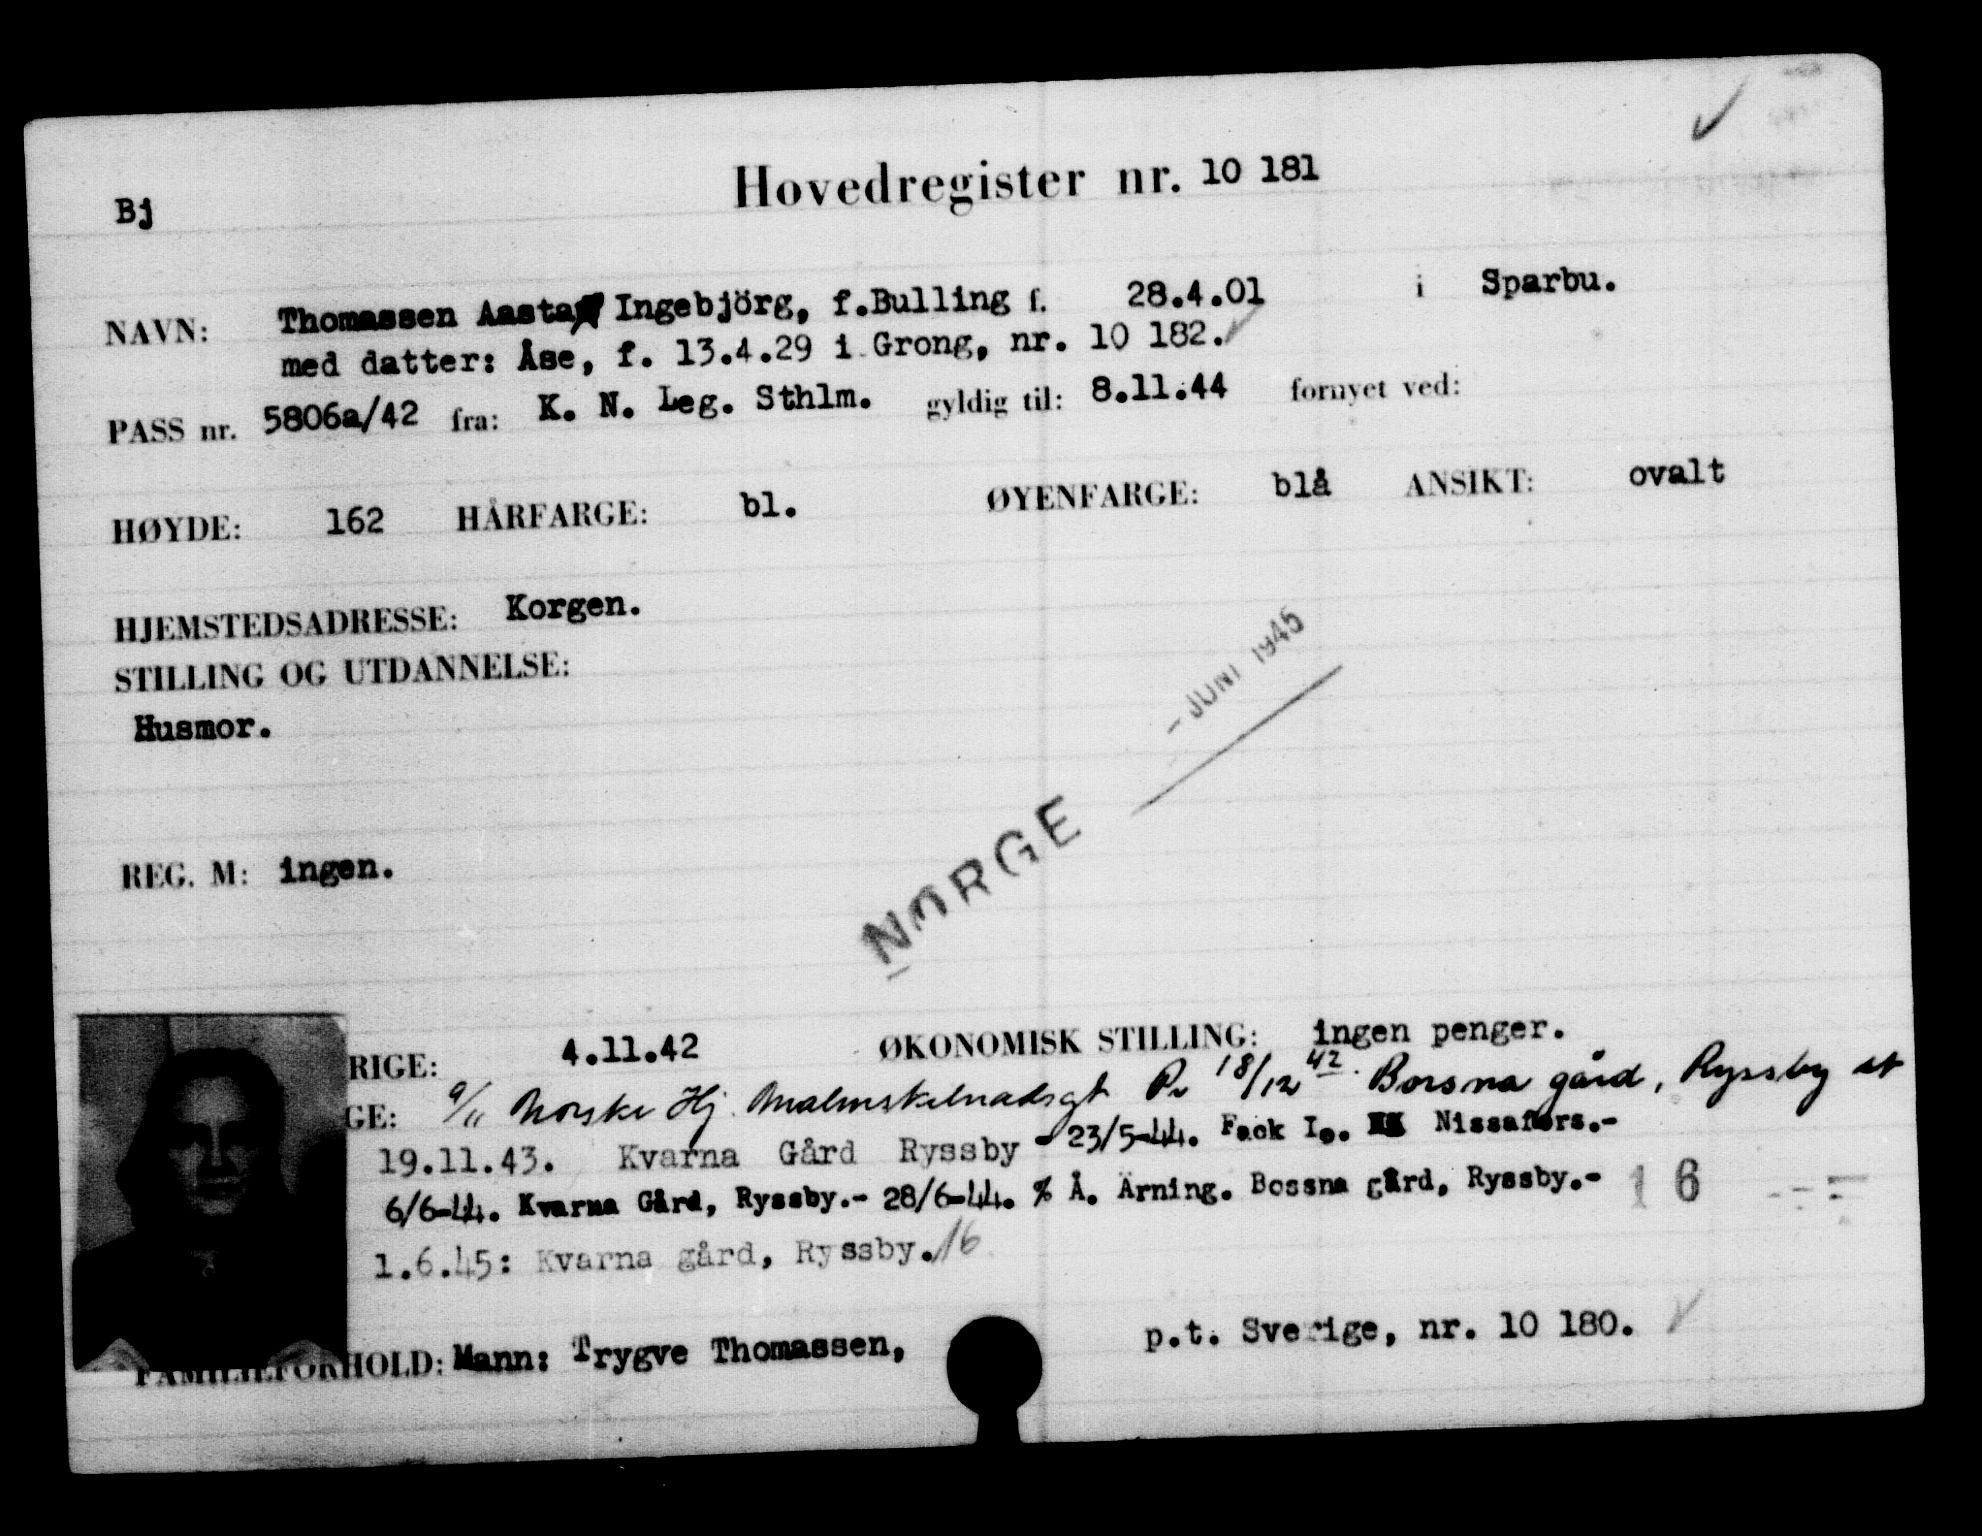 Bj
Hovedregister nr. 10 181
NAVN: Thomassen Aasta Ingebjörg, f.Bulling f. 28.4.01 i Sparbu.
med datter: Åse, f. 13.4.29 i Grong, nr. 10 182.
PASS nr. 5806a/42 fra: K. N. Leg. Sthlm. gyldig til: 8.11.44 fornyet ved:
HØYDE: 162 HÅRFARGE: bl. ØYENFARGE: blå ANSIKT: ovalt
HJEMSTEDSADRESSE: Korgen.
STILLING OG UTDANNELSE:
Husmor.
- JUNI 1945
NORGE
REG. M: ingen.
RIGE: 4.11.42 ØKONOMISK STILLING: ingen penger.
GE: 9/11 Norske Hj. Malmskilnadsgt 18/12 42. Borsna gård, Ryssby
19.11.43. Kvarna Gård Ryssby - 23/5-44. Fack Nissafors.-
6/6-44. Kvarna Gård, Ryssby.- 28/6-44. % Å. Ärning. Bossna gård, Ryssby.- 16
1.6.45: Kvarna gård, Ryssby. 16
FAMILIEFORHOLD: Mann: Trygve Thomassen, p.t. Sverige, nr. 10 180.